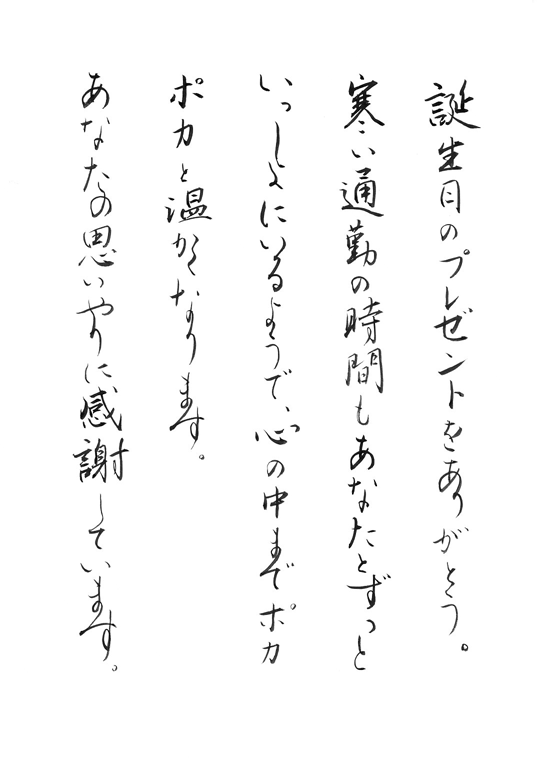 誕生日のプレゼントをありがとう。
寒い通勤の時間もあなたとずっと
いっしょにいるようで、心の中までポカ
ポカと温かくなります。
あなたの思いやりに感謝しています。